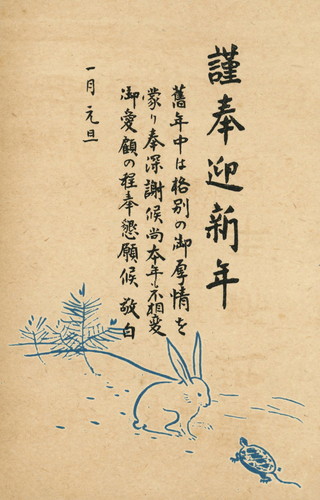 謹奉迎新年
舊年中は格別の御厚情を
蒙り奉深謝候尚本年も不相変
御愛顧の程奉懇願候 敬白
一月元旦